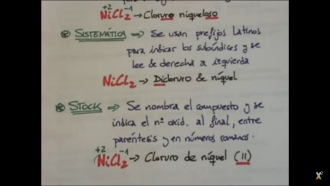 +2 -1
NiCl2 → Cloruro niqueloso
* SISTEMÁTICA → Se usan prefijos latinos
para indicar los subíndices y se
lee de derecha a izquierda
NiCl2 → Dicloruro de níquel
* STOCK → Se nombra el compuesto y se
indica el nº oxid. al final, entre
paréntesis y en números romanos.
+2 -1
NiCl2 → Cloruro de níquel (II)